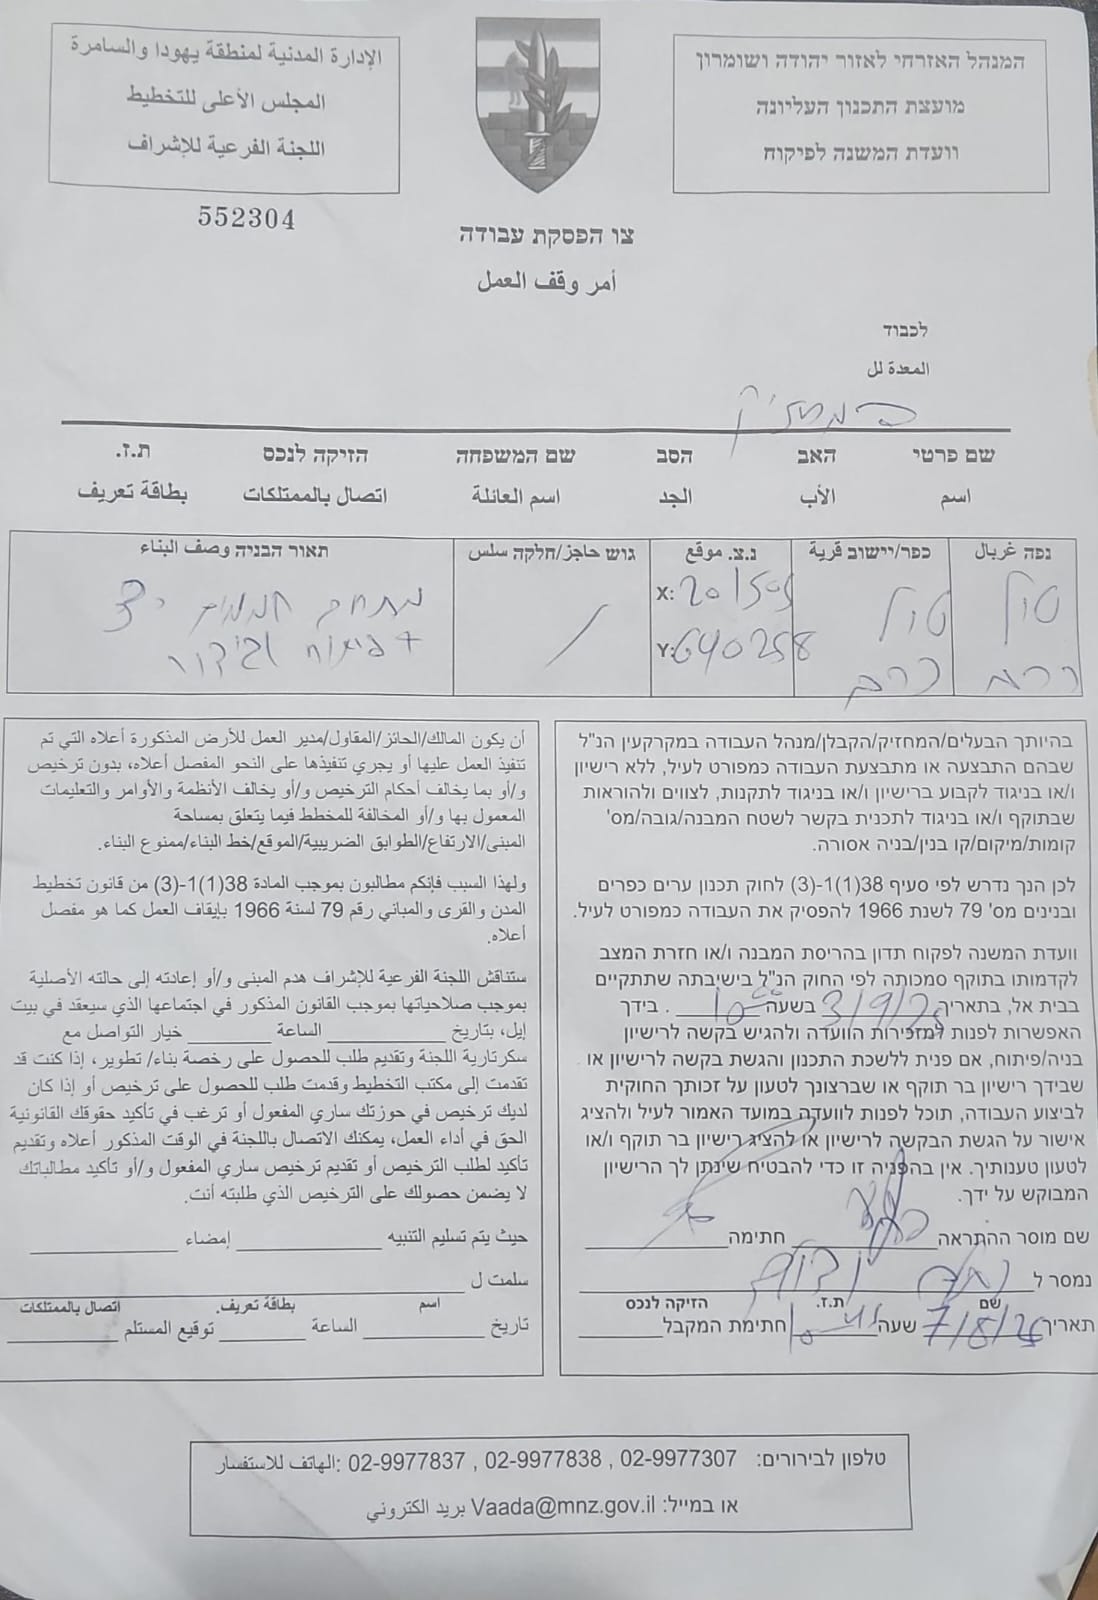 המנהל האזרחי לאזור יהודה ושומרון
מועצת התכנון העליונה
וועדת המשנה לפיקוח
الإدارة المدنية لمنطقة يهودا والسامرة
المجلس الأعلى للتخطيط
اللجنة الفرعية للإشراف
552304
צו הפסקת עבודה
أمر وقف العمل
לכבוד
المعدة لل
המחזיק
שם פרטי האב הסב שם המשפחה הזיקה לנכס ת.ז.
اسم الأب الجد اسم العائلة اتصال بالممتلكات بطاقة تعريف
נפה غربال כפר/יישוב قرية נ.צ. موقع גוש حاجز/חלקה سلس תאור הבניה وصف البناء
טול כרם
טול כרם
X: 201505
Y: 640258
/
מתחם חממות
+ פיתוח וגידור
בהיותך הבעלים/המחזיק/הקבלן/מנהל העבודה במקרקעין הנ"ל
שבהם התבצעה או מתבצעת העבודה כמפורט לעיל, ללא רישיון
ו/או בניגוד לקבוע ברישיון ו/או בניגוד לתקנות, לצווים ולהוראות
שבתוקף ו/או בניגוד לתכנית בקשר לשטח המבנה/גובה/מס'
קומות/מיקום/קו בנין/בניה אסורה.
לכן הנך נדרש לפי סעיף 38(1)1-(3) לחוק תכנון ערים כפרים
ובנינים מס' 79 לשנת 1966 להפסיק את העבודה כמפורט לעיל.
וועדת המשנה לפקוח תדון בהריסת המבנה ו/או חזרת המצב
לקדמותו בתוקף סמכותה לפי החוק הנ"ל בישיבתה שתתקיים
בבית אל, בתאריך 3/9/25 בשעה 10:00. בידך
האפשרות לפנות למזכירות הוועדה ולהגיש בקשה לרישיון
בניה/פיתוח, אם פנית ללשכת התכנון והגשת בקשה לרישיון או
שבידך רישיון בר תוקף או שברצונך לטעון על זכותך החוקית
לביצוע העבודה, תוכל לפנות לוועדה במועד האמור לעיל ולהציג
אישור על הגשת הבקשה לרישיון או להציג רישיון בר תוקף ו/או
לטעון טענותיך. אין בהפניה זו כדי להבטיח שינתן לך הרישיון
המבוקש על ידך.
שם מוסר ההתראה חתימה
נמסר ל
שם ת.ז. הזיקה לנכס
תאריך 7/8/25 שעה חתימת המקבל
أن يكون المالك/الحائز/المقاول/مدير العمل للأرض المذكورة أعلاه التي تم
تنفيذ العمل عليها أو يجري تنفيذها على النحو المفصل أعلاه، بدون ترخيص
و/أو بما يخالف أحكام الترخيص و/أو يخالف الأنظمة والأوامر والتعليمات
المعمول بها و/أو المخالفة للمخطط فيما يتعلق بمساحة
المبنى/الارتفاع/الطوابق الضريبية/الموقع/خط البناء/ممنوع البناء.
ولهذا السبب فإنكم مطالبون بموجب المادة 38(1)1-(3) من قانون تخطيط
المدن والقرى والمباني رقم 79 لسنة 1966 بإيقاف العمل كما هو مفصل
أعلاه.
ستناقش اللجنة الفرعية للإشراف هدم المبنى و/أو إعادته إلى حالته الأصلية
بموجب صلاحياتها بموجب القانون المذكور في اجتماعها الذي سيعقد في بيت
إيل، بتاريخ الساعة خيار التواصل مع
سكرتارية اللجنة وتقديم طلب للحصول على رخصة بناء/ تطوير، إذا كنت قد
تقدمت إلى مكتب التخطيط وقدمت طلب للحصول على ترخيص أو إذا كان
لديك ترخيص في حوزتك ساري المفعول أو ترغب في تأكيد حقوقك القانونية
الحق في أداء العمل، يمكنك الاتصال باللجنة في الوقت المذكور أعلاه وتقديم
تأكيد لطلب الترخيص أو تقديم ترخيص ساري المفعول و/أو تأكيد مطالباتك
لا يضمن حصولك على الترخيص الذي طلبته أنت.
حيث يتم تسليم التنبيه إمضاء
سلمت ل
اسم بطاقة تعريف. اتصال بالممتلكات
تاريخ الساعة توقيع المستلم
טלפון לבירורים: 02-9977307 , 02-9977838 , 02-9977837 :الهاتف للاستفسار
או במייל: Vaada@mnz.gov.il بريد الكتروني